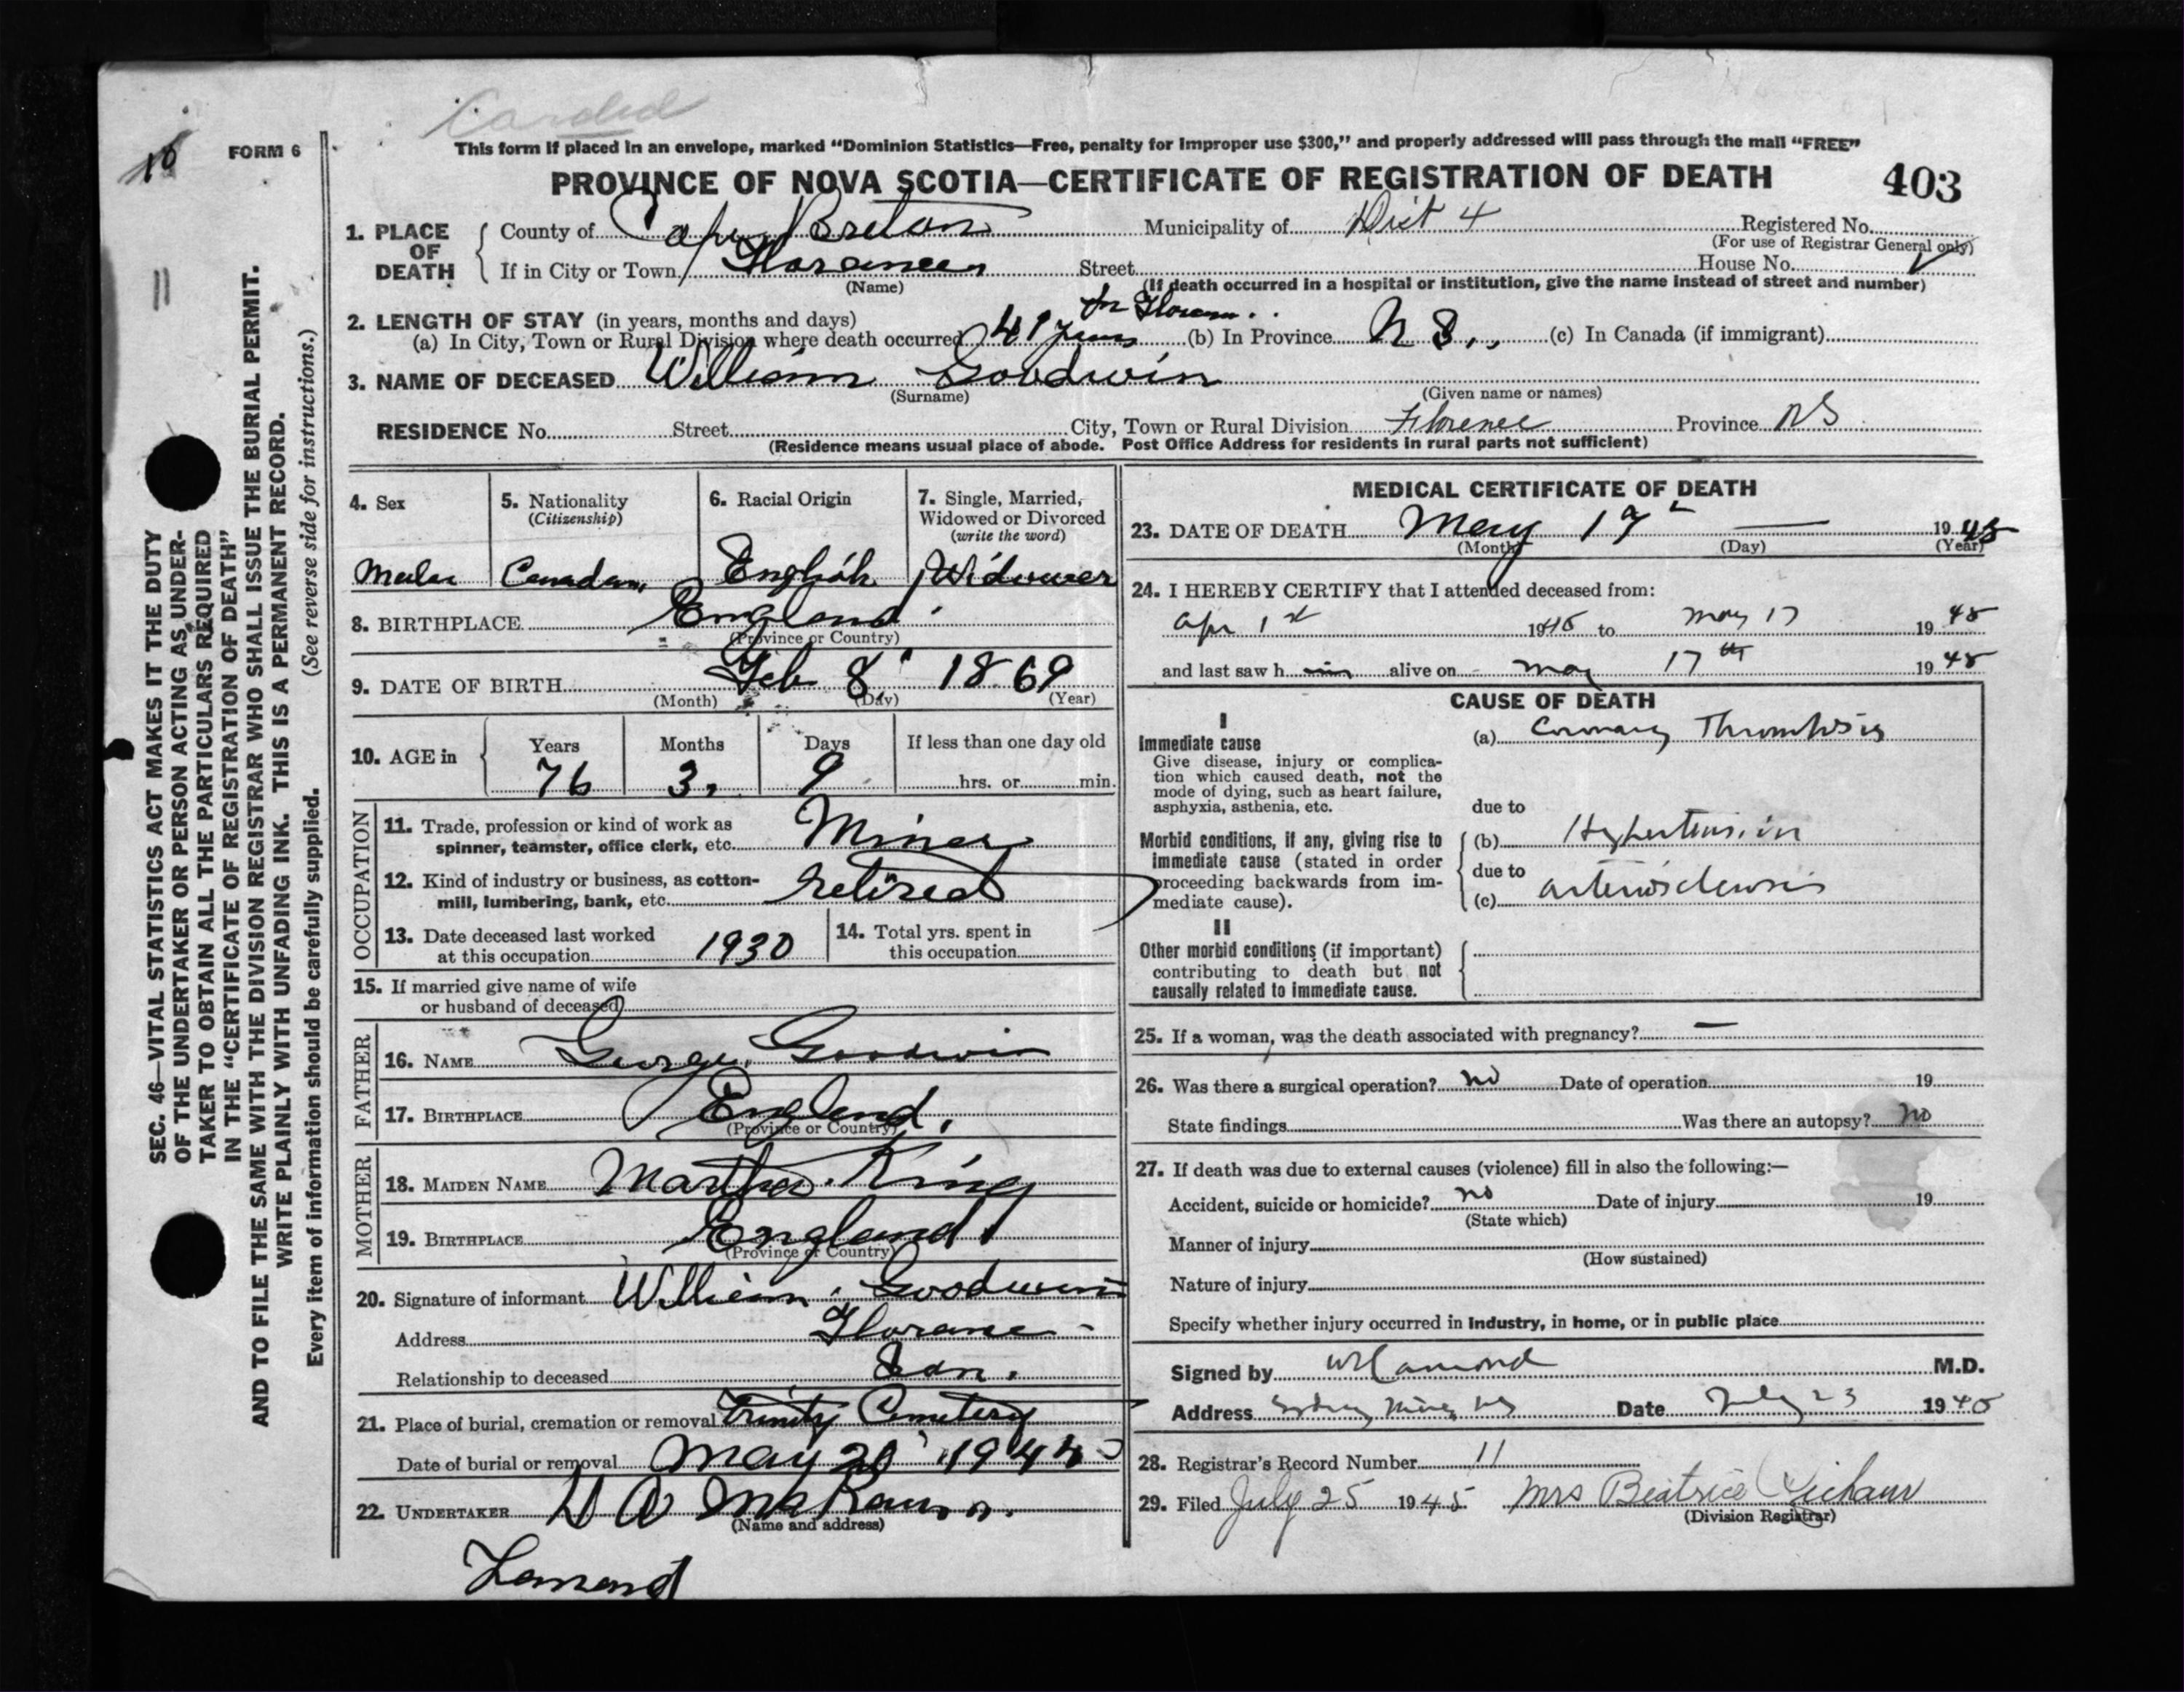 Carded
10
FORM 6
This form if placed in an envelope, marked "Dominion Statistics—Free, penalty for improper use $300," and properly addressed will pass through the mail "FREE"
PROVINCE OF NOVA SCOTIA—CERTIFICATE OF REGISTRATION OF DEATH 403
1. PLACE OF DEATH
County of Cape Breton Municipality of Dist 4 Registered No.
(For use of Registrar General only)
If in City or Town Street House No.
(Name) (If death occurred in a hospital or institution, give the name instead of street and number)
2. LENGTH OF STAY (in years, months and days)
(a) In City, Town or Rural Division where death occurred 41 years (b) In Province N S. (c) In Canada (if immigrant)
3. NAME OF DECEASED William Goodwin
(Surname) (Given name or names)
RESIDENCE No. Street City, Town or Rural Division Florence Province NS
(Residence means usual place of abode. Post Office Address for residents in rural parts not sufficient)
4. Sex
5. Nationality
(Citizenship)
6. Racial Origin
7. Single, Married,
Widowed or Divorced
(write the word)
English Widower
8. BIRTHPLACE England
(Province or Country)
9. DATE OF BIRTH Feb 8 1869
(Month) (Day) (Year)
10. AGE in
Years Months Days If less than one day old
76 3 9 hrs. or min.
OCCUPATION
11. Trade, profession or kind of work as
spinner, teamster, office clerk, etc. Miner
12. Kind of industry or business, as cotton-
mill, lumbering, bank, etc. retired
13. Date deceased last worked
at this occupation 1930
14. Total yrs. spent in
this occupation
15. If married give name of wife
or husband of deceased
FATHER
16. NAME George Goodwin
17. BIRTHPLACE England.
(Province or Country)
MOTHER
18. MAIDEN NAME Martha King
19. BIRTHPLACE England
(Province or Country)
20. Signature of informant William Goodwin
Address
Relationship to deceased Son.
21. Place of burial, cremation or removal Trinity Cemetery
Date of burial or removal May
22. UNDERTAKER
(Name and address)
MEDICAL CERTIFICATE OF DEATH
23. DATE OF DEATH May 17 1945
(Month) (Day) (Year)
24. I HEREBY CERTIFY that I attended deceased from:
Apr 1st 19 to May 17 1945
and last saw him alive on May 17th 1945
CAUSE OF DEATH
I
Immediate cause
Give disease, injury or complica-
tion which caused death, not the
mode of dying, such as heart failure,
asphyxia, asthenia, etc.
(a) Coronary Thrombosis
due to
Morbid conditions, if any, giving rise to
immediate cause (stated in order
proceeding backwards from im-
mediate cause).
(b) Hypertension
due to
(c) arteriosclerosis
II
Other morbid conditions (if important)
contributing to death but not
causally related to immediate cause.
25. If a woman, was the death associated with pregnancy? —
26. Was there a surgical operation? no Date of operation 19
State findings Was there an autopsy? no
27. If death was due to external causes (violence) fill in also the following:—
Accident, suicide or homicide? no Date of injury 19
(State which)
Manner of injury
(How sustained)
Nature of injury
Specify whether injury occurred in industry, in home, or in public place
Signed by M.D.
Address Sydney Mines NS Date July 23 19
28. Registrar's Record Number 11
29. Filed July 25 1945 Mrs Beatrice
(Division Registrar)
11
SEC. 46—VITAL STATISTICS ACT MAKES IT THE DUTY
OF THE UNDERTAKER OR PERSON ACTING AS UNDER-
TAKER TO OBTAIN ALL THE PARTICULARS REQUIRED
IN THE "CERTIFICATE OF REGISTRATION OF DEATH"
AND TO FILE THE SAME WITH THE DIVISION REGISTRAR WHO SHALL ISSUE THE BURIAL PERMIT.
WRITE PLAINLY WITH UNFADING INK. THIS IS A PERMANENT RECORD.
Every item of information should be carefully supplied. (See reverse side for instructions.)